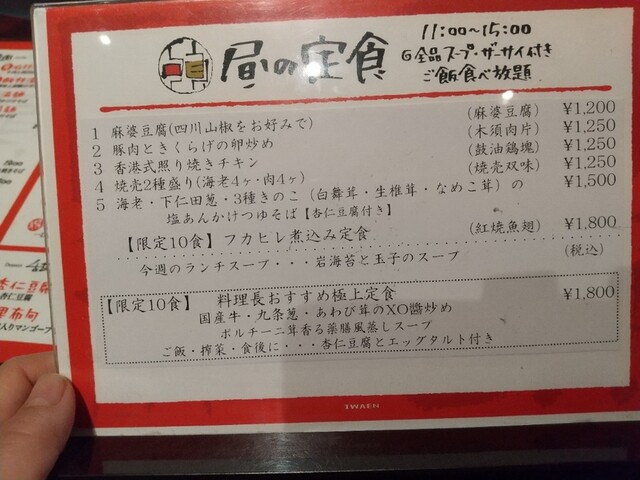 昼の定食
11:00〜15:00
全品スープ・ザーサイ付き
ご飯食べ放題
1 麻婆豆腐(四川山椒をお好みで) (麻婆豆腐) ¥1,200
2 豚肉ときくらげの卵炒め (木須肉片) ¥1,250
3 香港式照り焼きチキン (鼓油鶏塊) ¥1,250
4 焼売2種盛り(海老4ヶ・肉4ヶ) (焼売双味) ¥1,250
5 海老・下仁田葱・3種きのこ(白舞茸・生椎茸・なめこ茸)の ¥1,500
塩あんかけつゆそば【杏仁豆腐付き】
【限定10食】フカヒレ煮込み定食 (紅焼魚翅) ¥1,800
(税込)
今週のランチスープ・・・岩海苔と玉子のスープ
【限定10食】 料理長おすすめ極上定食 ¥1,800
国産牛・九条葱・あわび茸のXO醬炒め
ポルチーニ茸香る薬膳風蒸しスープ
ご飯・搾菜・食後に・・・杏仁豆腐とエッグタルト付き
IWAEN
杏仁豆腐